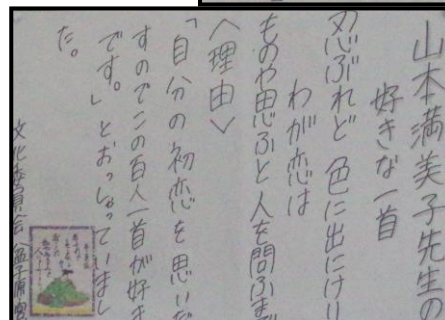 山本満美子先生の
好きな一首
忍ぶれど色に出にけり
わが恋は
ものや思ふと人を問ふま
〈理由〉
「自分の初恋を思いだ
すのでこの百人一首が好き
です。」とおっしゃっていまし
た。
文化委員会